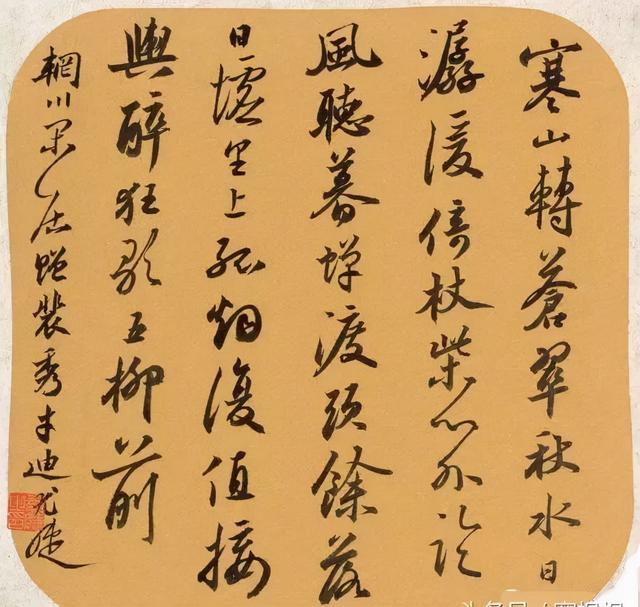 寒山轉蒼翠秋水日
潺湲倚杖柴門外臨
風聽暮蟬渡頭餘落
日墟里上孤烟復值接
輿醉狂歌五柳前
輞川閒居贈裴秀才迪